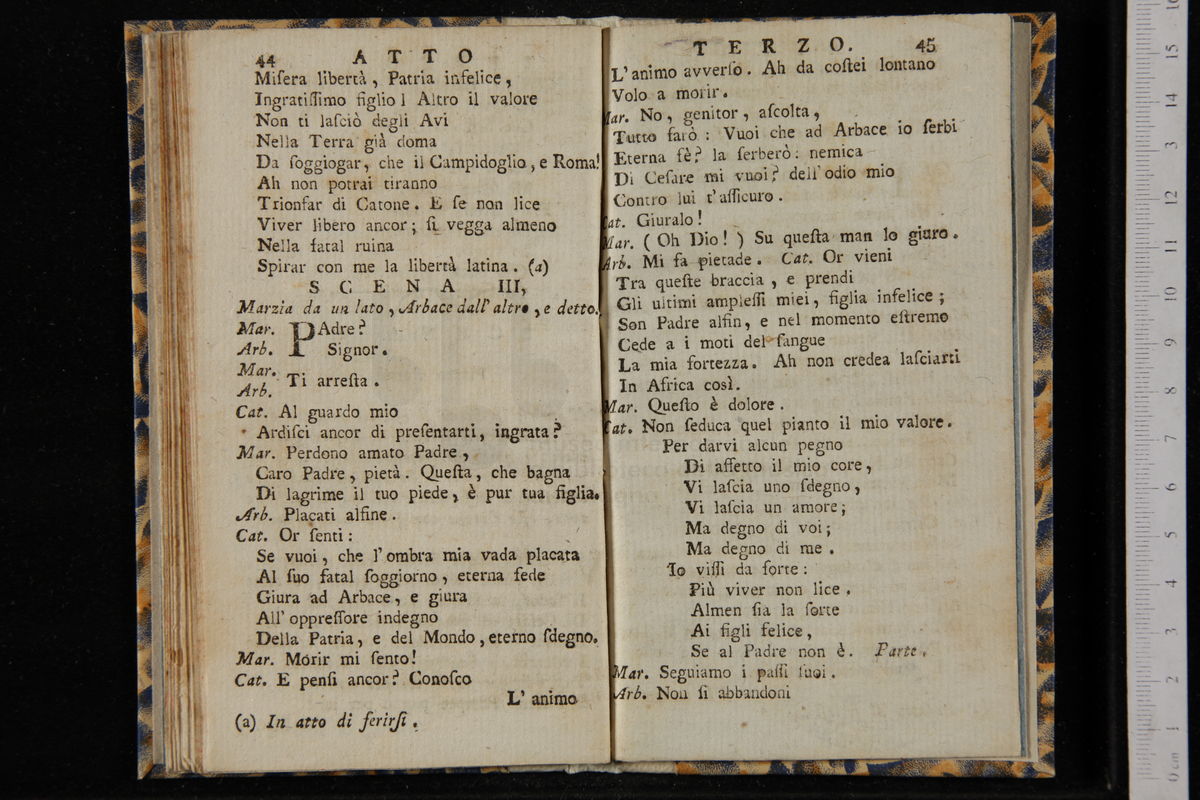 44 ATTO
Miſera libertà, Patria infelice,
Ingratiſſimo figlio! Altro il valore
Non ti laſciò degli Avi
Nella Terra già doma
Da ſoggiogar, che il Campidoglio, e Roma!
Ah non potrai tiranno
Trionfar di Catone. E ſe non lice
Viver libero ancor; ſi vegga almeno
Nella fatal ruina
Spirar con me la libertà latina. (a)
SCENA III,
Marzia da un lato, Arbace dall' altro, e detto.
Mar. PAdre?
Arb. Signor.
Mar.
Arb. Ti arreſta.
Cat. Al guardo mio
Ardiſci ancor di preſentarti, ingrata?
Mar. Perdono amato Padre,
Caro Padre, pietà. Queſta, che bagna
Di lagrime il tuo piede, è pur tua figlia.
Arb. Placati alfine.
Cat. Or ſenti:
Se vuoi, che l'ombra mia vada placata
Al ſuo fatal ſoggiorno, eterna fede
Giura ad Arbace, e giura
All' oppreſſore indegno
Della Patria, e del Mondo, eterno ſdegno.
Mar. Morir mi ſento!
Cat. E penſi ancor? Conoſco
L' animo
(a) In atto di ferirſi.
TERZO. 45
L'animo avverſo. Ah da coſtei lontano
Volo a morir.
Mar. No, genitor, aſcolta,
Tutto farò: Vuoi che ad Arbace io ſerbi
Eterna fè? la ſerberò: nemica
Di Ceſare mi vuoi? dell' odio mio
Contro lui t'aſſicuro.
Cat. Giuralo!
Mar. (Oh Dio!) Su queſta man lo giuro.
Arb. Mi fa pietade. Cat. Or vieni
Tra queſte braccia, e prendi
Gli ultimi ampleſſi miei, figlia infelice;
Son Padre alfin, e nel momento eſtremo
Cede a i moti del ſangue
La mia fortezza. Ah non credea laſciarti
In Africa così.
Mar. Queſto è dolore.
Cat. Non ſeduca quel pianto il mio valore.
Per darvi alcun pegno
Di affetto il mio core,
Vi laſcia uno ſdegno,
Vi laſcia un amore;
Ma degno di voi;
Ma degno di me.
Io viſſi da forte:
Più viver non lice.
Almen ſia la ſorte
Ai figli felice,
Se al Padre non è. Parte.
Mar. Seguiamo i paſſi ſuoi.
Arb. Non ſi abbandoni